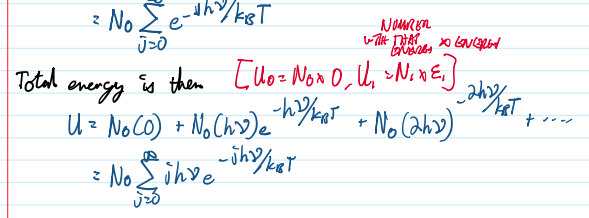 = N₀ ∑_{j=0}^{∞} e^{-jhν/k_BT}
NUMBER
WITH THAT
ENERGY × ENERGY
Total energy is then [U₀ = N₀ × 0, U₁ = N₁ × ε₁]
U = N₀(0) + N₀(hν)e^{-hν/k_BT} + N₀(2hν)^{-2hν/k_BT} + ....
= N₀ ∑_{j=0}^{∞} jhνe^{-jhν/k_BT}